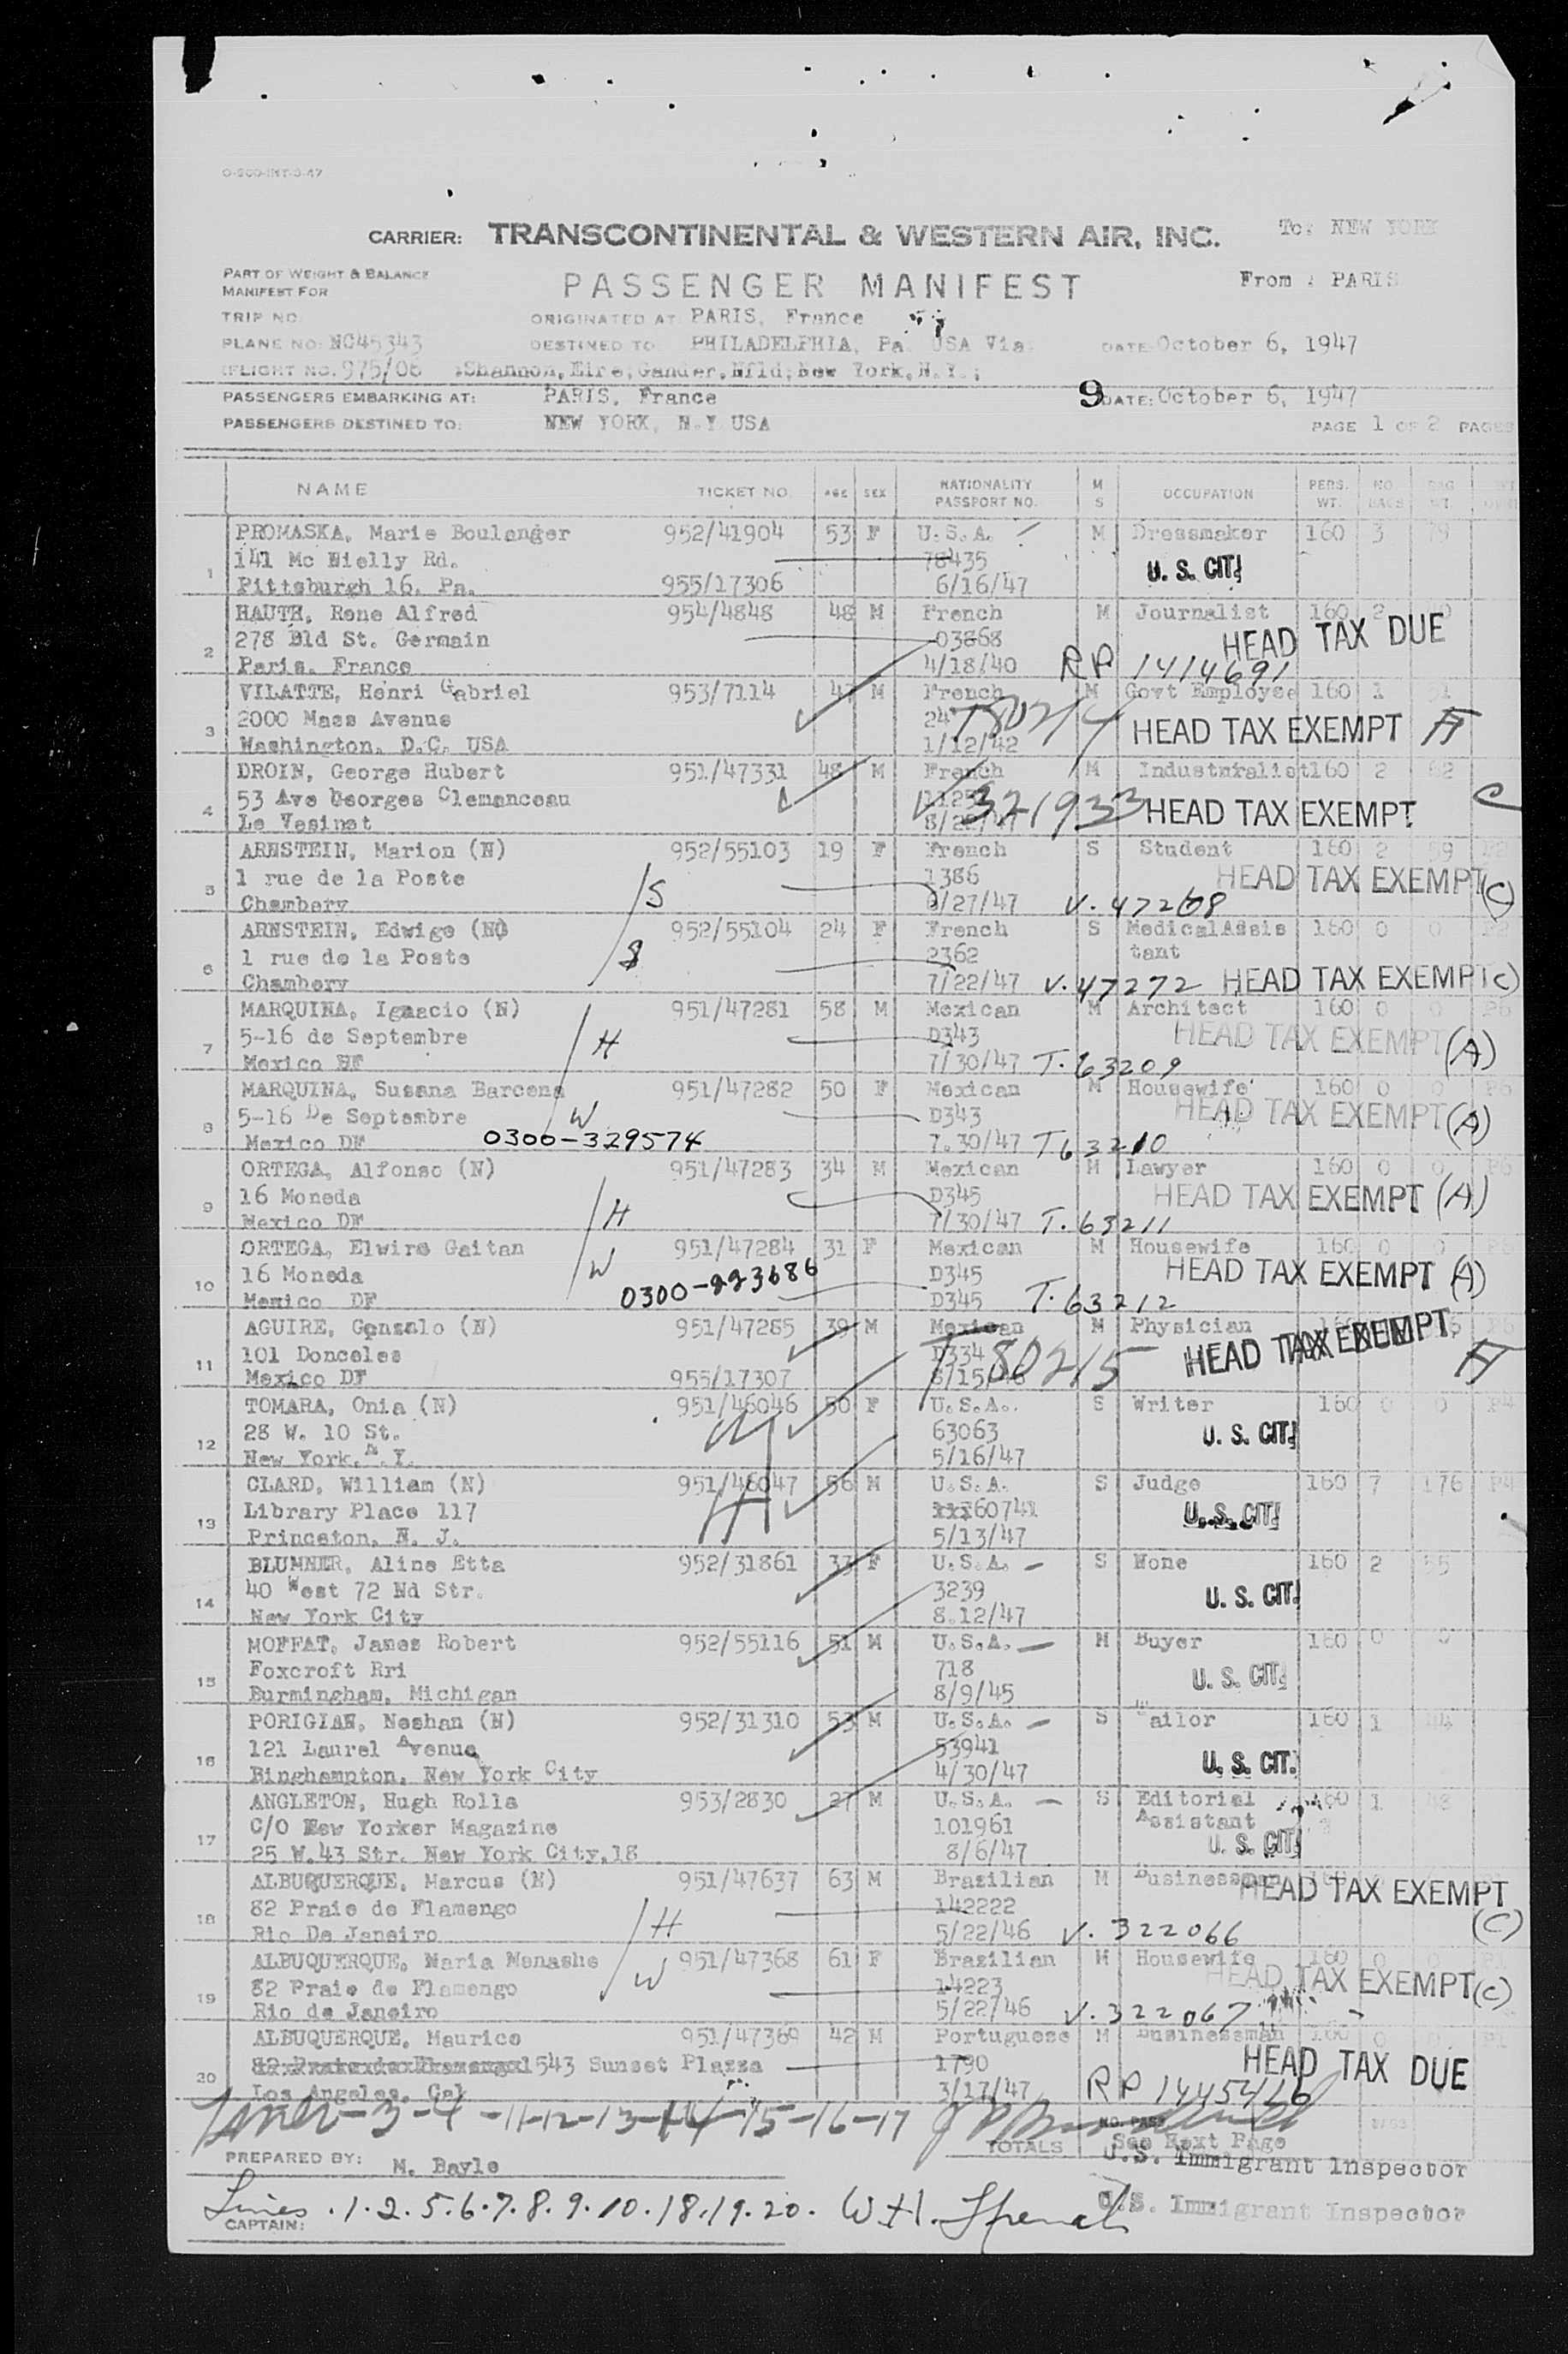 O-800-INT-3-47
CARRIER: TRANSCONTINENTAL & WESTERN AIR, INC. To: NEW YORK
PART OF WEIGHT & BALANCE
MANIFEST FOR
PASSENGER MANIFEST From : PARIS
TRIP NO. ORIGINATED AT PARIS, France
PLANE NO: NC45343 DESTINED TO PHILADELPHIA, Pa. USA Via. DATE October 6, 1947
FLIGHT NO. 975/06 Shannon, Eire; Gander, Nfld; New York, N.Y.;
PASSENGERS EMBARKING AT: PARIS, France 9 DATE: October 6, 1947
PASSENGERS DESTINED TO: NEW YORK, N.Y USA PAGE 1 OF 2 PAGES
NAME TICKET NO. AGE SEX NATIONALITY PASSPORT NO. M S OCCUPATION PERS. WT. NO. BAGS BAG WT.
PROMASKA, Marie Boulanger 952/41904 53 F U.S.A. M Dressmaker 160 3 79
141 Mc Nielly Rd. 78435 U. S. CIT.
1 Pittsburgh 16. Pa. 955/17306 6/16/47
HAUTH, Rene Alfred 954/4848 48 M French M Journalist 160 2
278 Bld St. Germain 03868 HEAD TAX DUE
2 Paris. France 4/18/40 RP 1414691
VILATTE, Henri Gabriel 953/7114 47 M French M Govt Employee 160 1 51
2000 Mass Avenue 24 T80214 HEAD TAX EXEMPT A
3 Washington. D.C. USA 1/12/42
DROIN, George Hubert 951/47331 48 M French M Industrialist 160 2 62
53 Ave Georges Clemenceau V 321933 HEAD TAX EXEMPT C
4 Le Vesinet
ARNSTEIN, Marion (N) 952/55103 19 F French S Student 160 2 59
1 rue de la Poste S 1386 HEAD TAX EXEMPT (C)
5 Chambery /27/47 V. 47268
ARNSTEIN, Edwige (N) 952/55104 24 F French S MedicalAssis 160 0 0
1 rue de la Poste S 2362 tant
6 Chambery 7/22/47 V. 47272 HEAD TAX EXEMPT (C)
MARQUINA, Ignacio (N) 951/47281 58 M Mexican M Architect 160 0 0 P6
5-16 de Septembre H D343 HEAD TAX EXEMPT (A)
7 Mexico DF 7/30/47 T. 63209
MARQUINA, Susana Barcena 951/47282 50 F Mexican M Housewife 160 0 0 P6
5-16 De Septembre W D343 HEAD TAX EXEMPT (A)
8 Mexico DF 0300-329574 7.30/47 T63210
ORTEGA, Alfonso (N) 951/47283 34 M Mexican M Lawyer 160 0 0 P6
16 Moneda D345 HEAD TAX EXEMPT (A)
9 Mexico DF H 7/30/47 T. 63211
ORTEGA, Elwira Gaitan 951/47284 31 F Mexican M Housewife 160 0 0
16 Moneda W 0300-223686 D345 HEAD TAX EXEMPT (A)
10 Mexico DF D345 T. 63212
AGUIRE, Gonzalo (N) 951/47285 39 M Mexican M Physician
101 Donceles D334 T 80215 HEAD TAX EXEMPT A
11 Mexico DF 955/17307
TOMARA, Onia (N) 951/46046 50 F U.S.A. S Writer 160 0 0 P4
28 W. 10 St. 63063 U. S. CIT.
12 New York. N.Y. 5/16/47
CLARD, William (N) 951/46047 56 M U.S.A. S Judge 160 7 176 P4
Library Place 117 60741 U. S. CIT.
13 Princeton. N. J. 5/13/47
BLUMNER, Aline Etta 952/31861 37 F U.S.A. S None 160 2 55
40 West 72 Nd Str. 3239 U. S. CIT.
14 New York City 8.12/47
MOFFAT, James Robert 952/55116 51 M U.S.A. M Buyer 160 0 0
Foxcroft Rri 718 U. S. CIT.
15 Burmingham, Michigan 8/9/45
PORIGIAN, Neshan (N) 952/31310 53 M U.S.A. S Tailor 160 1
121 Laurel Avenue 53941 U. S. CIT.
16 Binghampton. New York City 4/30/47
ANGLETON, Hugh Rolla 953/2830 27 M U.S.A. S Editorial 160 1 48
C/O New Yorker Magazine 101961 Assistant
17 25 W.43 Str. New York City.18 8/6/47 U. S. CIT.
ALBUQUERQUE, Marcus (N) 951/47637 63 M Brazilian M Businessman
82 Praie de Flamengo 142222 HEAD TAX EXEMPT (C)
18 Rio De Janeiro H 5/22/46 V. 322066
ALBUQUERQUE, Maria Menashe 951/47368 61 F Brazilian M Housewife 160 0 0
82 Praie de Flamengo W 14223 HEAD TAX EXEMPT (C)
19 Rio de Janeiro 5/22/46 V. 322067
ALBUQUERQUE, Maurice 951/47369 42 M Portuguese M Businessman 160 0
1543 Sunset Plazza 1790 HEAD TAX DUE
20 Los Angeles. Cal 3/17/47 RP 1445426
-3-4-11-12-13-14-15-16-17
NO. PASS
TOTALS See Next Page
PREPARED BY: M. Bayle U.S. Immigrant Inspector
Lines .1.2.5.6.7.8.9.10.18.19.20. U.S. Immigrant Inspector
CAPTAIN: